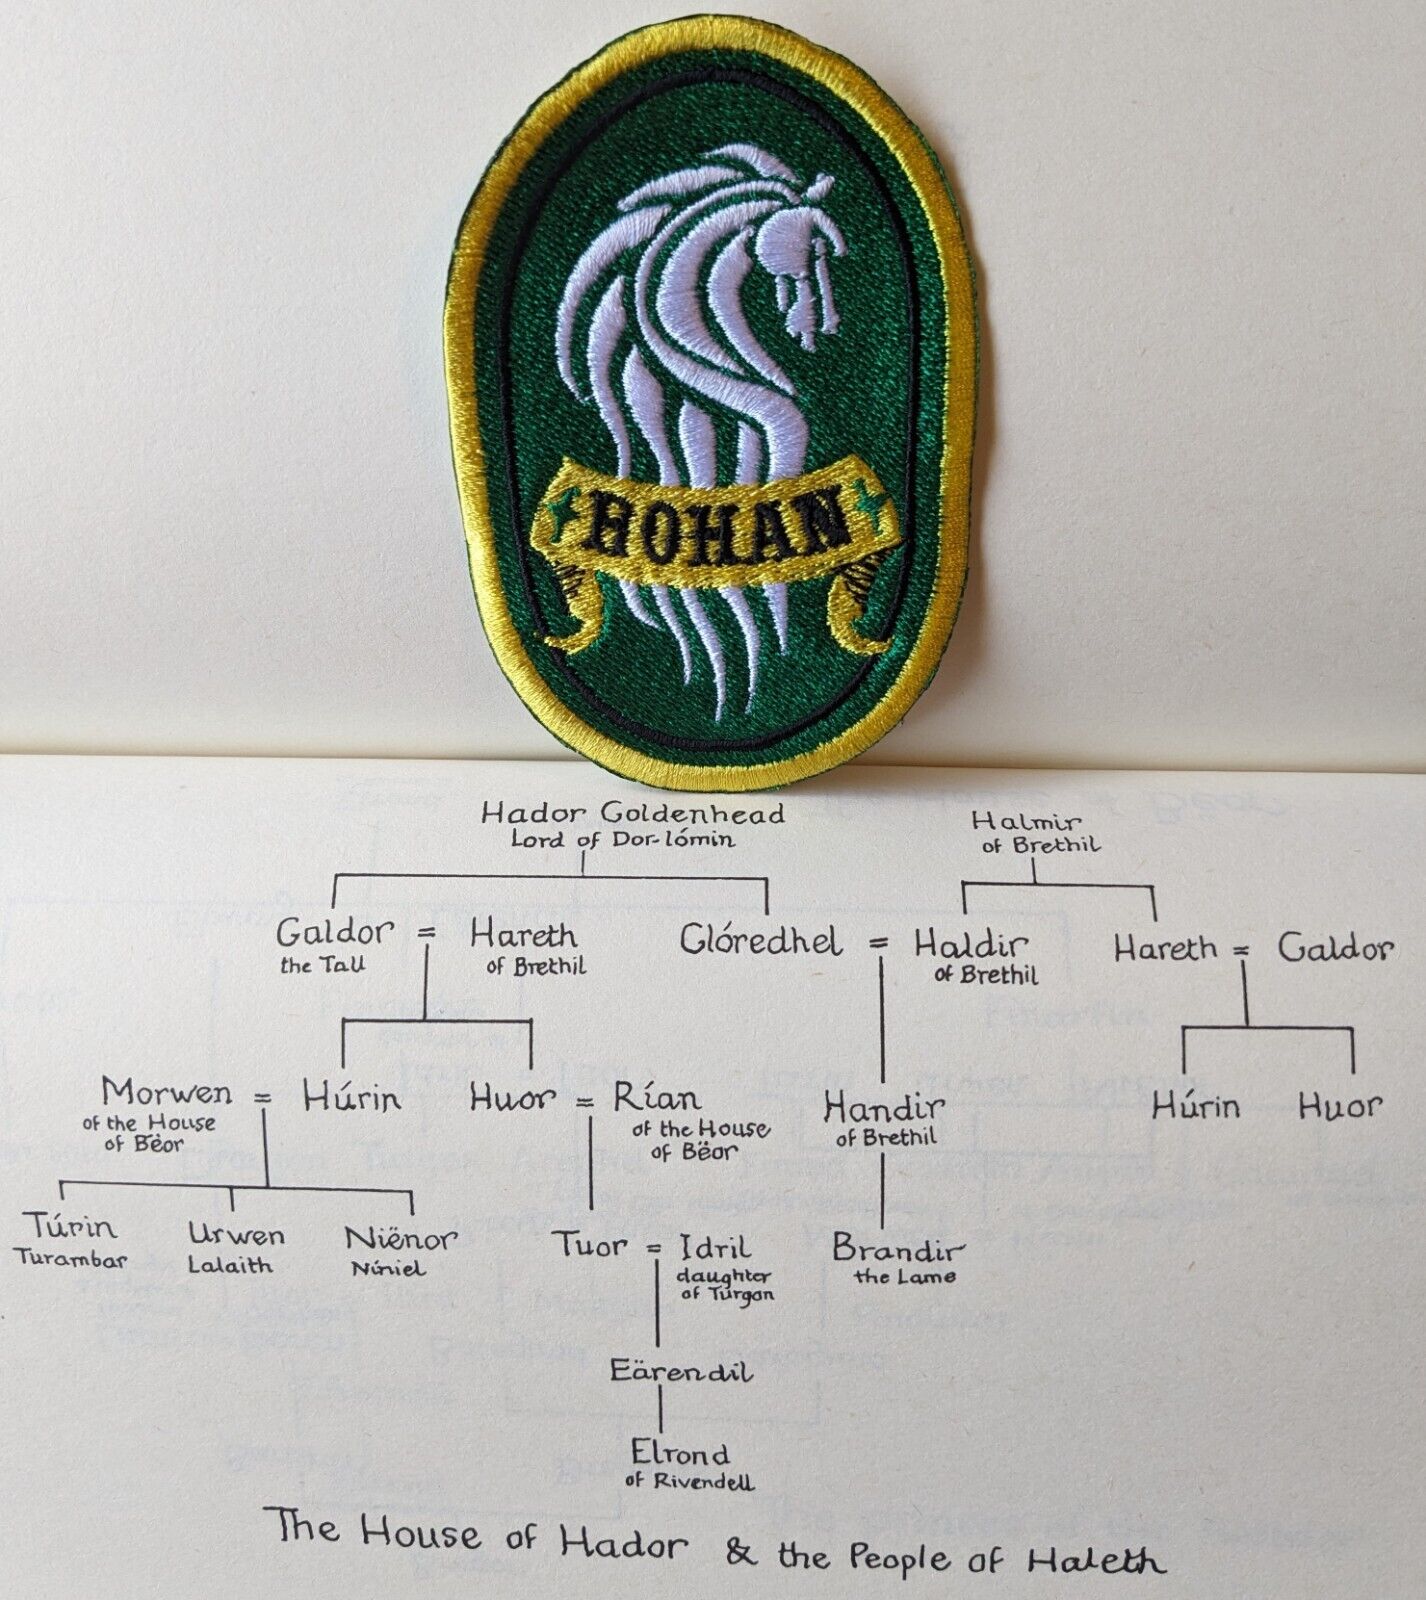 ROHAN
Hador Goldenhead
Lord of Dor-lómin
Halmir
of Brethil
Galdor = Hareth
the Tall of Brethil
Glóredhel = Haldir
of Brethil
Hareth = Galdor
Morwen = Húrin
of the House
of Bëor
Huor = Rían
of the House
of Bëor
Handir
of Brethil
Húrin Huor
Túrin
Turambar
Urwen
Lalaith
Niënor
Níniel
Tuor = Idril
daughter
of Turgon
Brandir
the Lame
Eärendil
Elrond
of Rivendell
The House of Hador & the People of Haleth